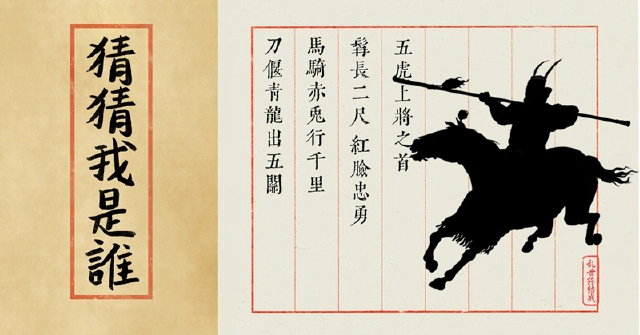 猜猜我是誰
五虎上將之首
髯長二尺 紅臉忠勇
馬騎赤兔行千里
刀偃青龍出五關